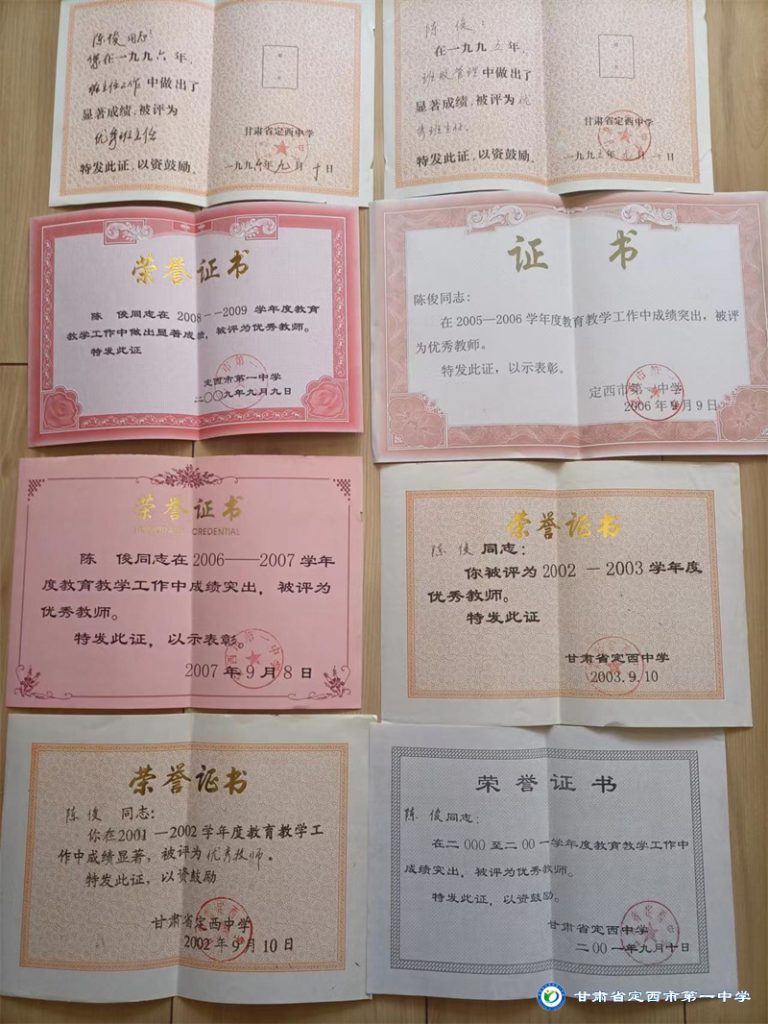 陈俊同志:
您在一九九六年,
班主任工作中做出了
显著成绩,被评为
优秀班主任
特发此证,以资鼓励。
甘肃省定西中学
一九九六年九月十日
陈俊:
在一九九五年,
班级管理中做出了
显著成绩,被评为优
秀班主任。
特发此证,以资鼓励。
甘肃省定西中学
一九九五年九月十日
荣誉证书
陈 俊同志在 2008--2009 学年度教育
教学工作中做出显著成绩,被评为优秀教师。
特发此证
定西市第一中学
二〇〇九年九月九日
证 书
陈俊同志:
在2005—2006学年度教育教学工作中成绩突出,被评
为优秀教师。
特发此证,以示表彰。
定西市第一中学
2006年9月9日
荣誉证书
CREDENTIAL
陈 俊同志在2006——2007学年
度教育教学工作中成绩突出,被评为
优秀教师。
特发此证,以示表彰。
2007年9月8日
荣誉证书
陈俊同志:
你被评为2002-2003学年度
优秀教师。
特发此证
甘肃省定西中学
2003.9.10
荣誉证书
陈俊 同志:
你在2001-2002学年度教育教学工
作中成绩显著,被评为优秀教师。
特发此证,以资鼓励
甘肃省定西中学
2002年9月10日
荣誉证书
陈俊同志:
在二000至二00一学年度教育教学工作中
成绩突出,被评为优秀教师。
特发此证,以资鼓励。
甘肃省定西中学
二00一年九月十日
甘肃省定西市第一中学